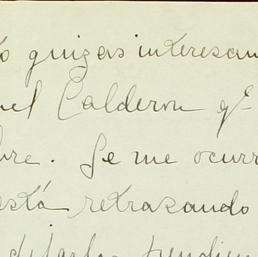 ó quizas interesan
uel Calderon qe
bre. Se me ocurr
está retrasando